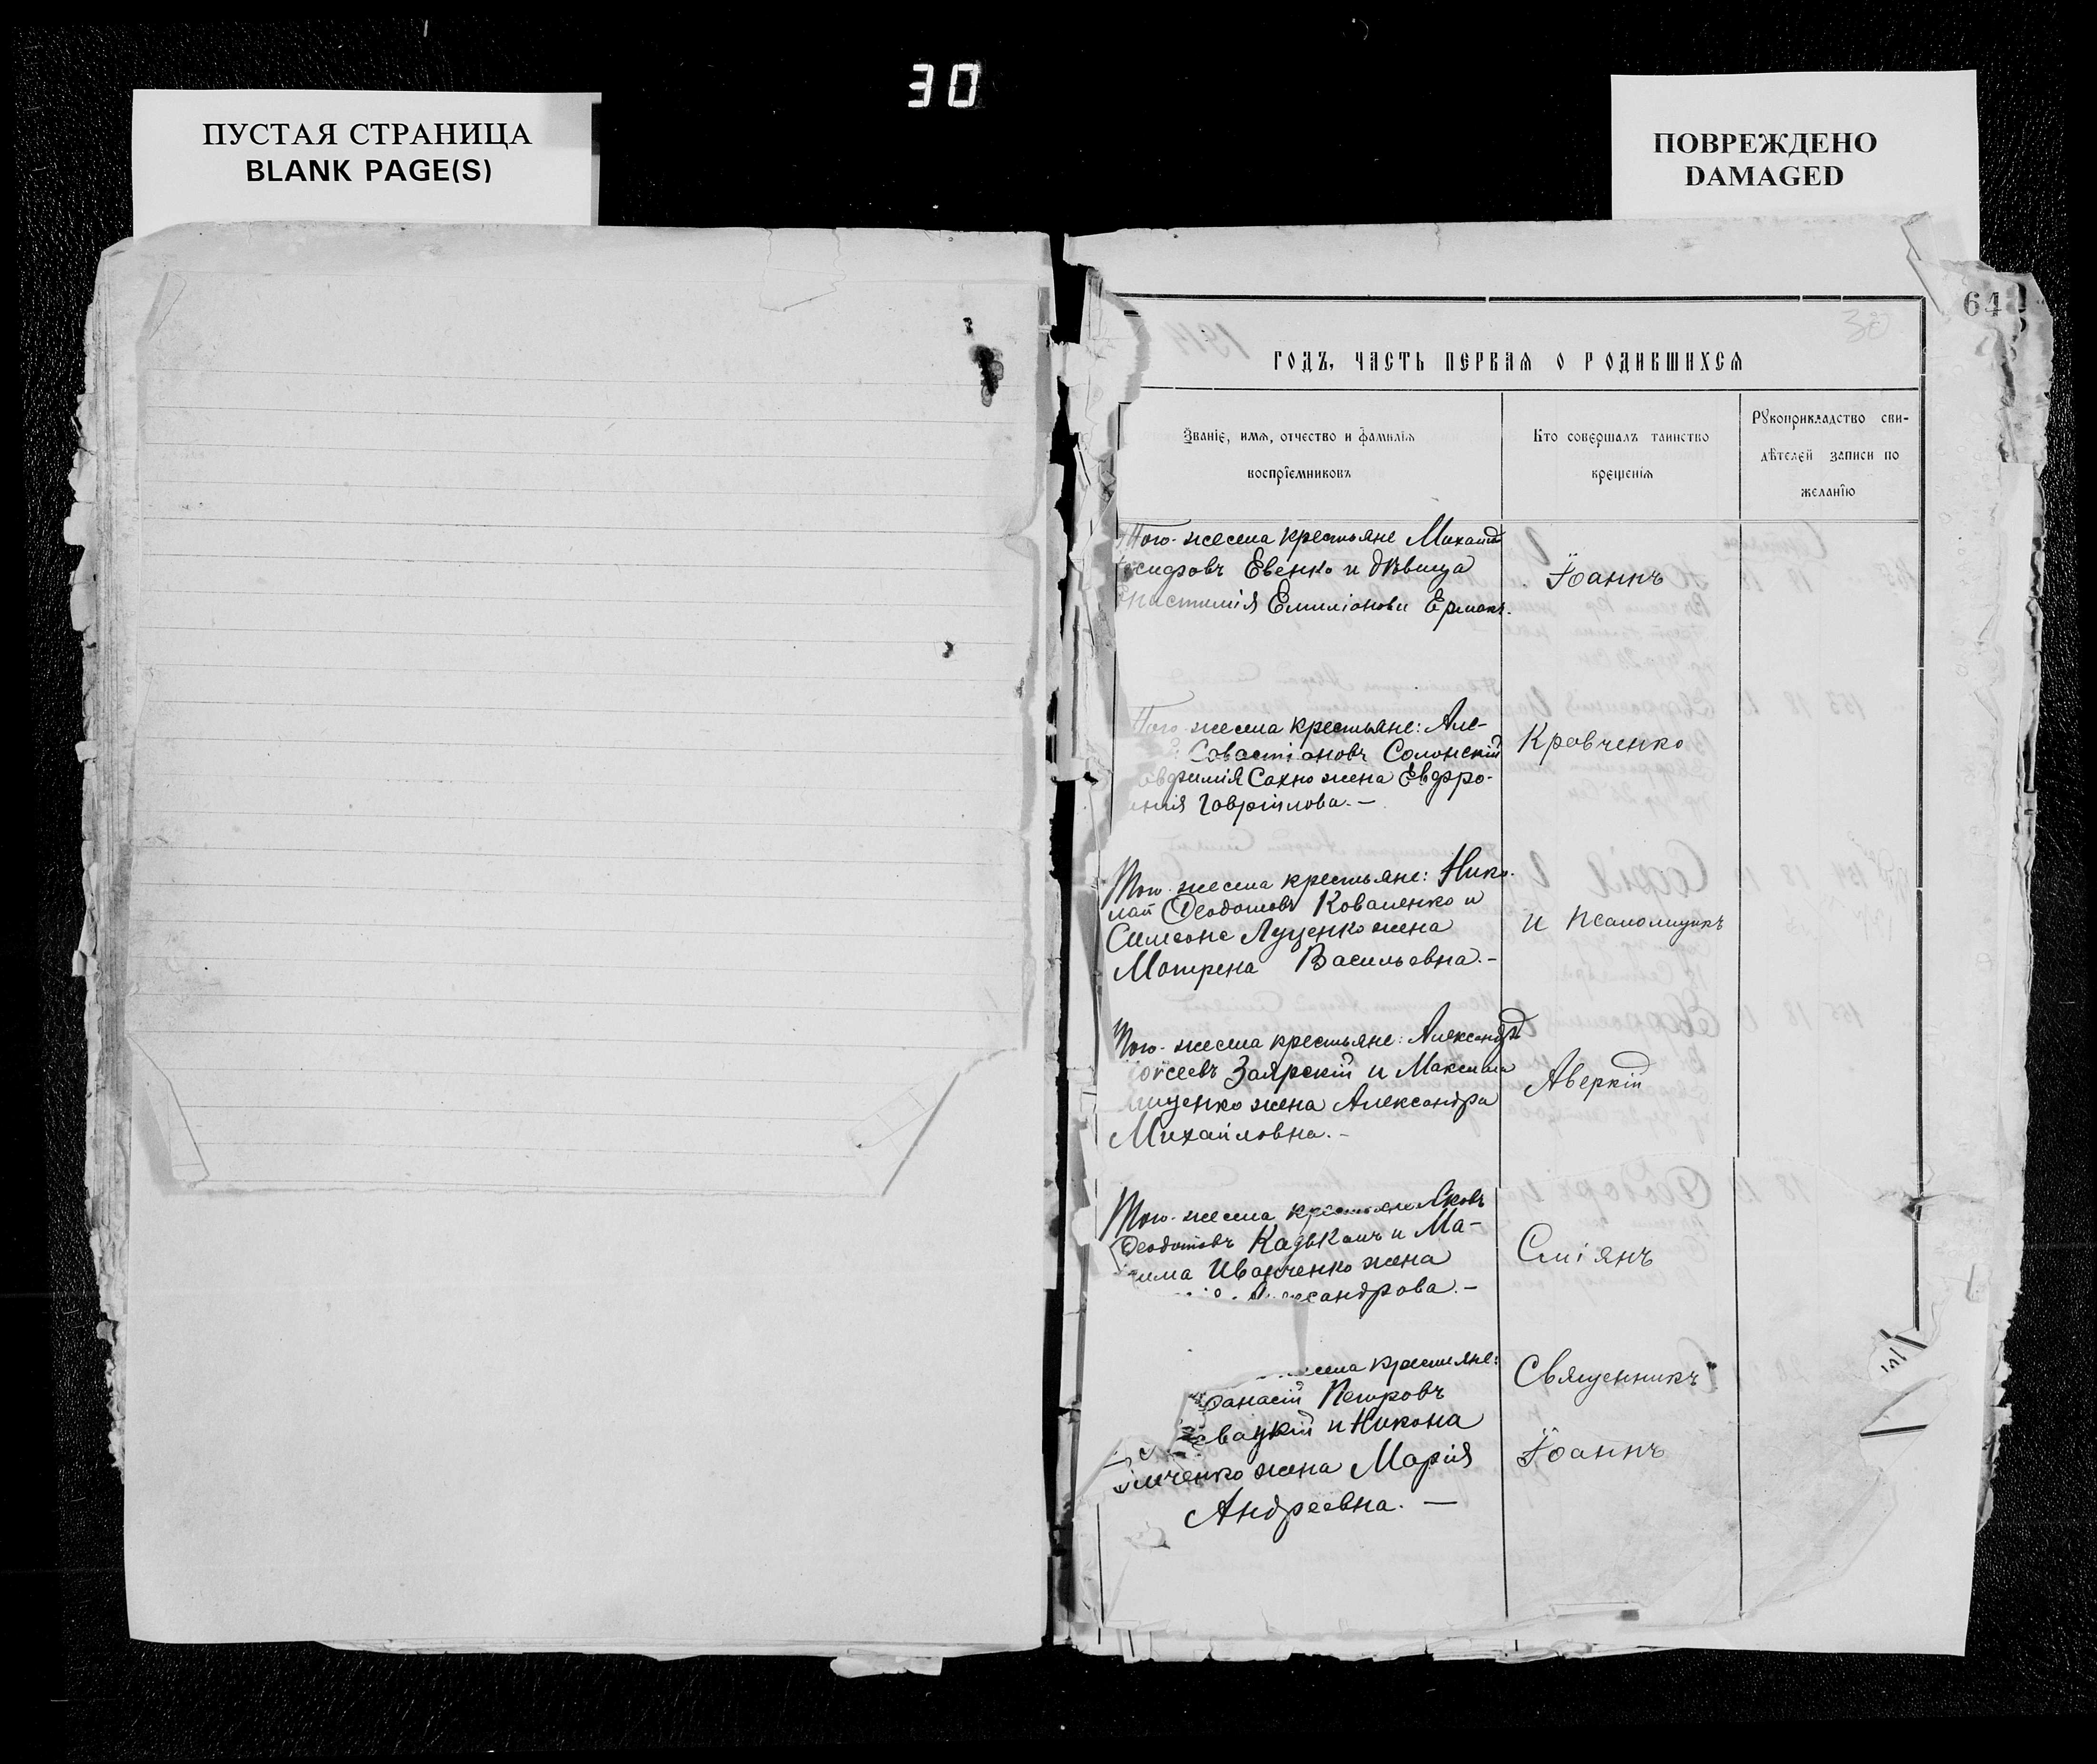 30
ПУСТАЯ СТРАНИЦА
BLANK PAGE(S)
ПОВРЕЖДЕНО
DAMAGED
64
ГОДЪ, ЧАСТЬ ПЕРВАЯ О РОДИВШИХСЯ
Званіе, имя, отчество и фамилія
воспріемниковъ
Кто совершалъ таинство
крещенія
Рукоприкладство сви-
дѣтелей записи по
желанію
Того-же села крестьяне Михаилъ
Евенко и дѣвица
Емиліонова Ермакъ.
Іоаннъ
Того-же села крестьяне: Але-
Савастіановъ Солонскій
Сахно жена Евфро-
Гавріилова.-
Кравченко
Того-же села крестьяне: Нико-
лай Ѳеодотовъ Коваленко и
Симеона Луценко жена
Мотрена Васильевна.-
и псаломщикъ
Того-же села крестьяне: Александръ
Заярскій и Максима
жена Александра
Михайловна.-
Аверкій
Того-же села крестьяне Яковъ
Ѳеодотовъ и Ма-
Иванченко жена
Сміянъ
села крестьяне:
Петровъ
и Никона
жена Марія
Андреевна.-
Священникъ
Іоаннъ